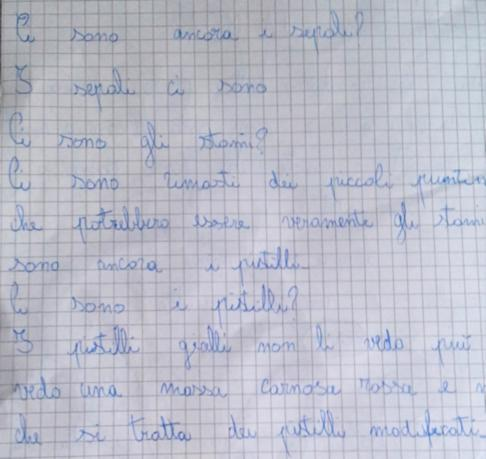 Ci sono ancora i sepali?
I sepali ci sono
Ci sono gli stami?
Ci sono rimasti dei piccoli puntin
che potrebbero essere veramente gli stami
sono ancora i pistilli
Ci sono i pistilli?
I pistilli gialli non li vedo più
vedo una massa carnosa rossa e
che si tratta dei pistilli modificati